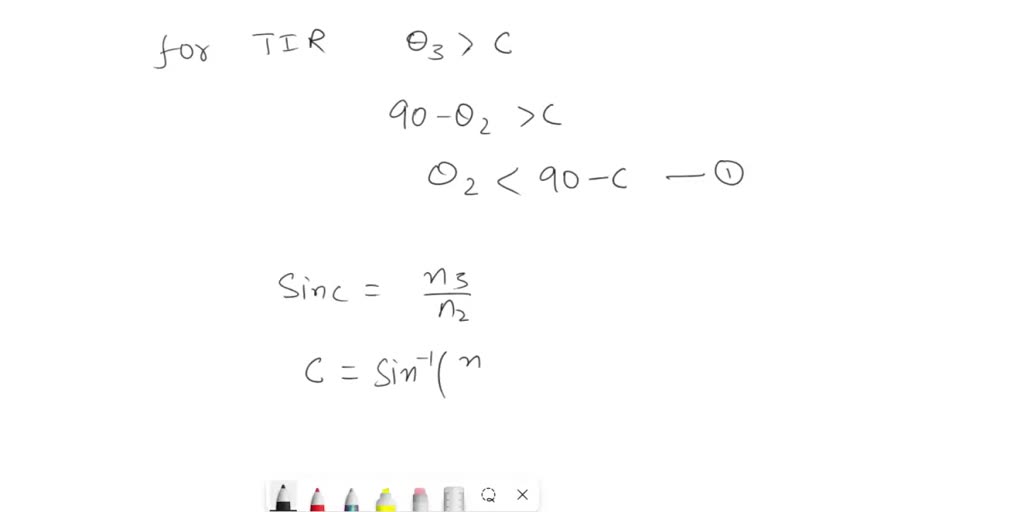 for TIR θ3 > C
90-θ2 >C
θ2 < 90-C — ①
Sinc = n3/n2
C = Sin⁻¹( n